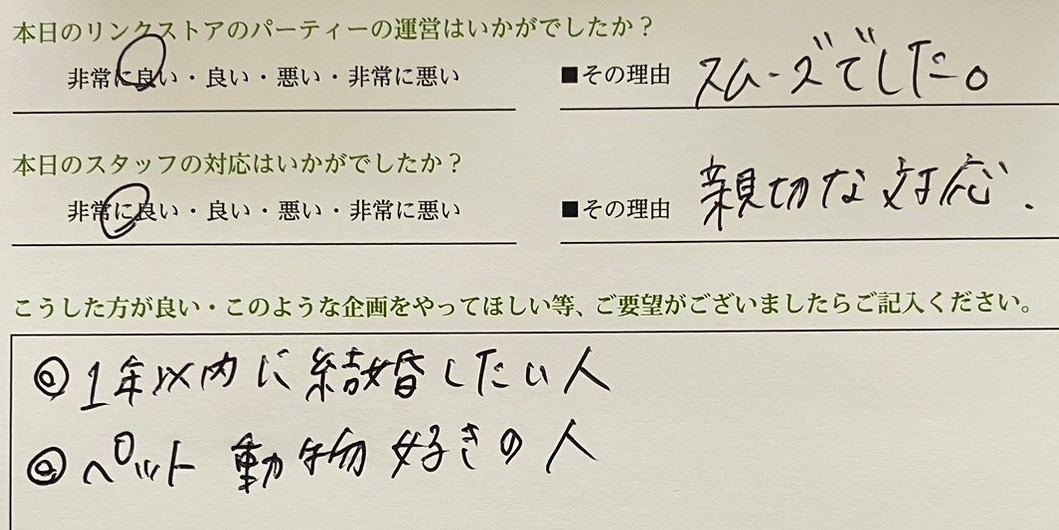 本日のリンクストアのパーティーの運営はいかがでしたか？
非常に良い・良い・悪い・非常に悪い ■その理由 スムーズでした。
本日のスタッフの対応はいかがでしたか？
非常に良い・良い・悪い・非常に悪い ■その理由 親切な対応.
こうした方が良い・このような企画をやってほしい等、ご要望がございましたらご記入ください。
◎1年以内に結婚したい人
◎ペット動物好きの人